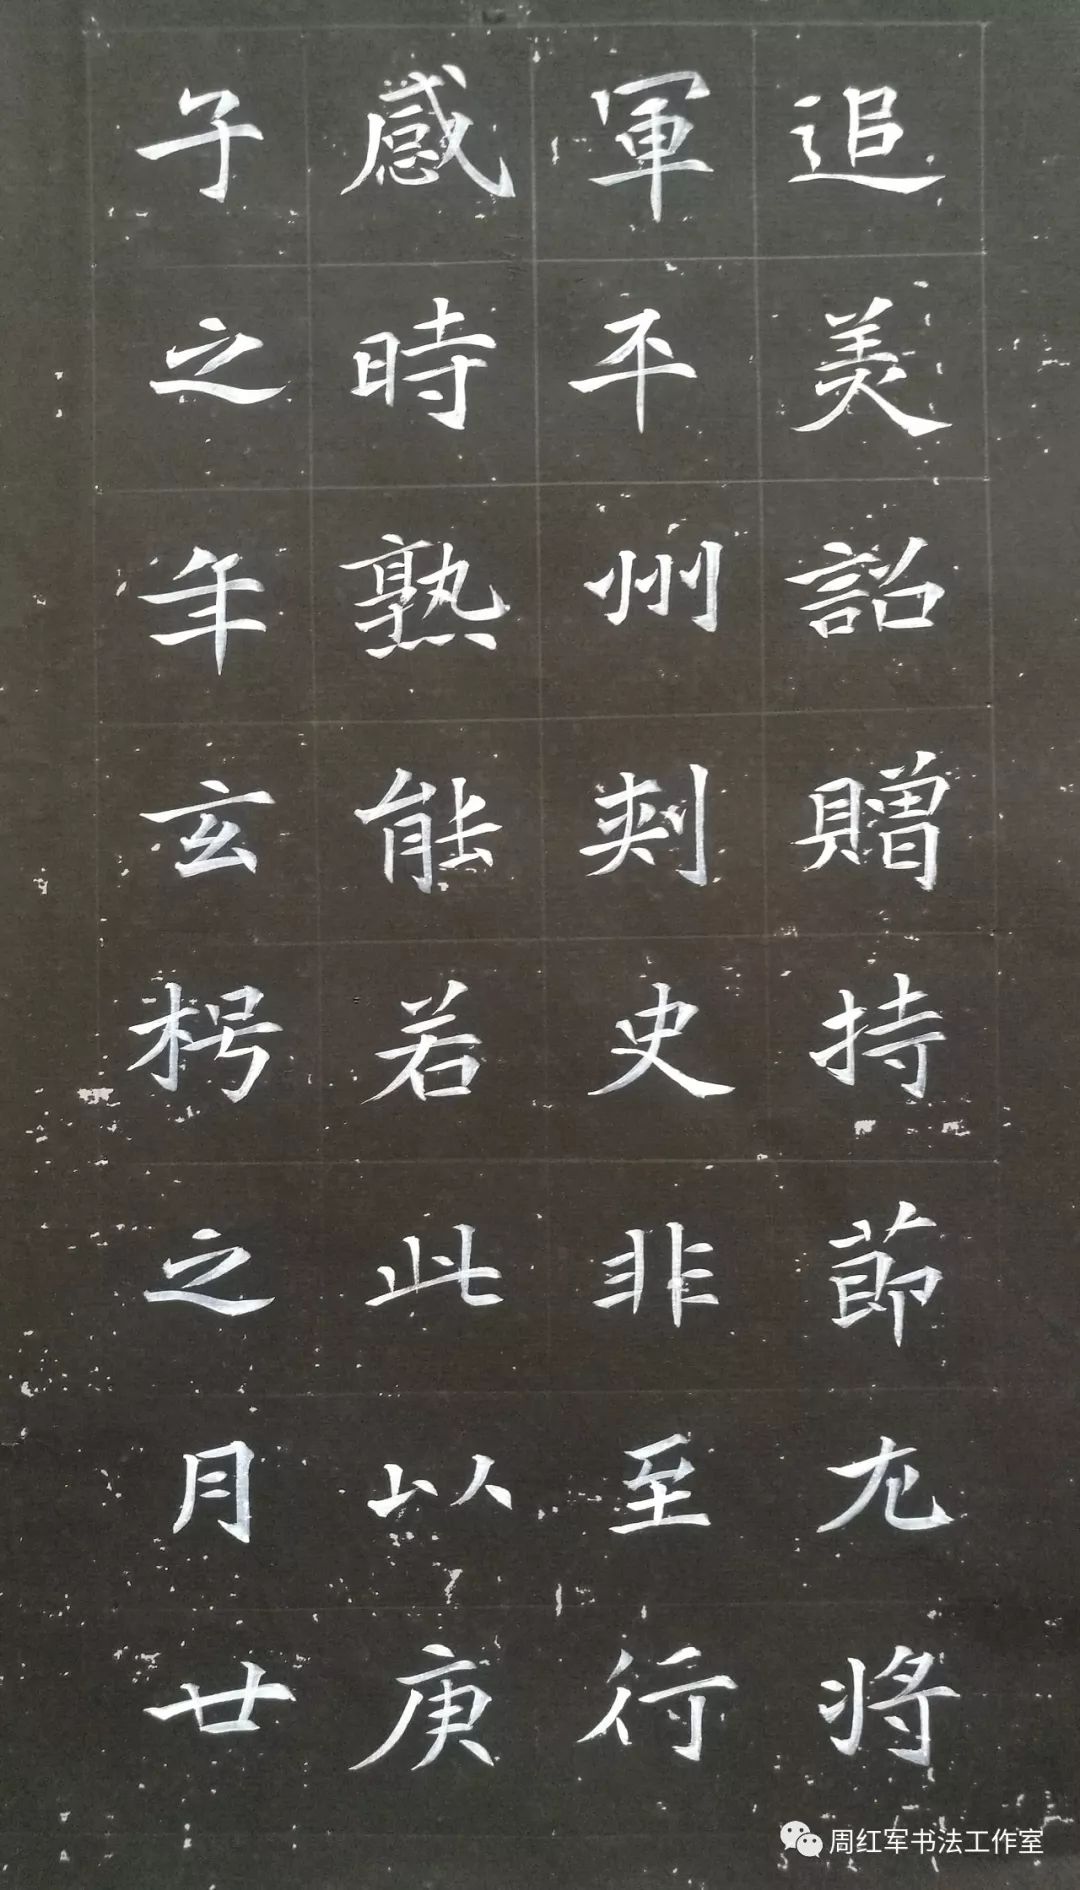 追美詔贈持節尢将
軍平州刾史非至行
感時熟能若此以庚
子之年玄枵之月廿
周红军书法工作室